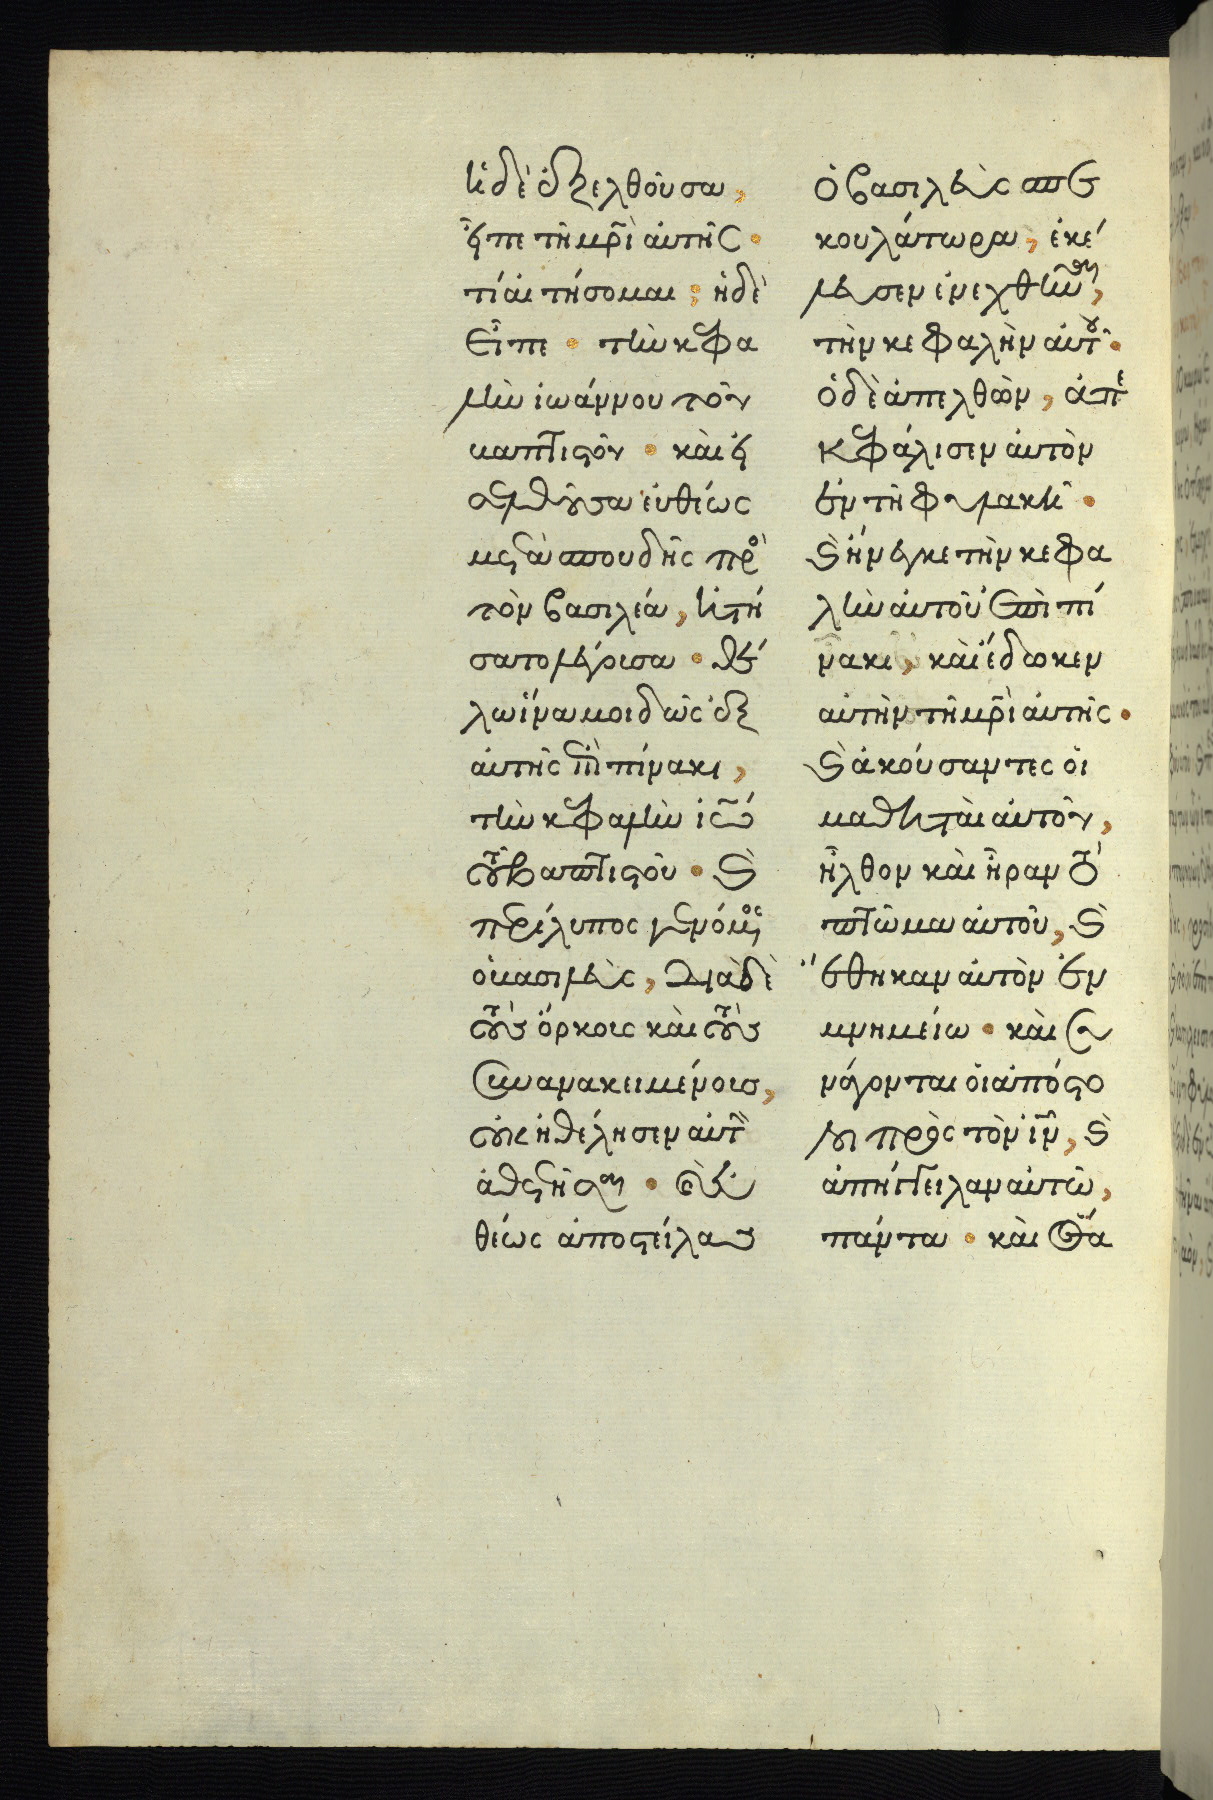 ἡ δὲ ἐξελθοῦσα,
εἶπε τῆ μρ̅ὶ αὐτῆς ·
τί αἰτήσομαι ; ἡ δὲ
εἶπε · τὴν κεφα
λὴν ἰωάννου τοῦ
βαπτιστοῦ · καὶ εἰ
σελθοῦσα εὐθέως
μετὰ σπουδῆς πρὸ
τὸν βασιλέα, ἠτή
σατο λέγουσα · θέ
λω ἵνα μοι δῶς ἐξ
αὐτῆς ἐπὶ πίνακι,
τὴν κεφαλὴν ἰω̅
τοῦ βαπτιστοῦ · καὶ
περίλυπος γενόμενος
ὁ βασιλεὺς, διὰ δὲ
τοὺς ὅρκοις καὶ τοὺς
συνανακειμένοις,
οὐκ ἠθέλησεν αὐτὴν
ἀθετῆσαι · καὶ εὐ
θέως ἀποστείλας
ὁ βασιλεὺς σπε
κουλάτωρα, ἐκέ
λευσεν ἐνεχθῆναι,
τὴν κεφαλὴν αὐτοῦ ·
ὁ δὲ ἀπελθὼν, ἀπε
κεφάλισεν αὐτὸν
ἐν τῆ φυλακῆ ·
καὶ ἤνεγκε τὴν κεφα
λὴν αὐτοῦ ἐπὶ πί
νακι, καὶ ἔδωκεν
αὐτὴν τῆ μρ̅ὶ αὐτῆς ·
καὶ ἀκούσαντες οἱ
μαθηταὶ αὐτοῦ,
ἦλθον καὶ ἦραν τὸ
πτῶμα αὐτοῦ, καὶ
ἔθηκαν αὐτὸν ἐν
μνημείω · καὶ συ
νάγονται οἱ ἀπόστο
λοι πρὸς τὸν ἰν̅, καὶ
ἀπήγγειλαν αὐτῶ,
πάντα · καὶ ὅσα